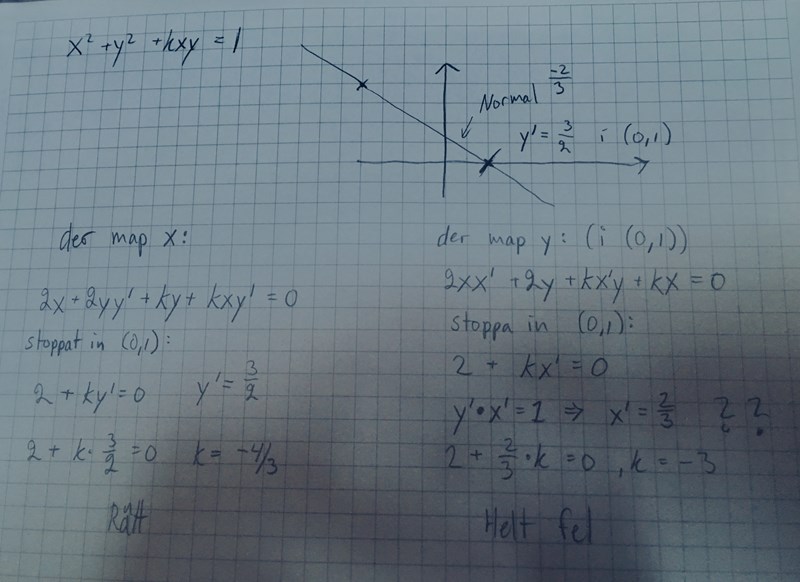 x² + y² + kxy = 1
Normal -2/3
y' = 3/2 i (0,1)
der map x:
2x + 2yy' + ky + kxy' = 0
stoppat in (0,1):
2 + ky' = 0 y' = 3/2
2 + k · 3/2 = 0 k = -4/3
Rätt
der map y: (i (0,1))
2xx' + 2y + kx'y + kx = 0
stoppa in (0,1):
2 + kx' = 0
y' · x' = 1 ⇒ x' = 2/3 ? ?
2 + 2/3 · k = 0, k = -3
Helt fel